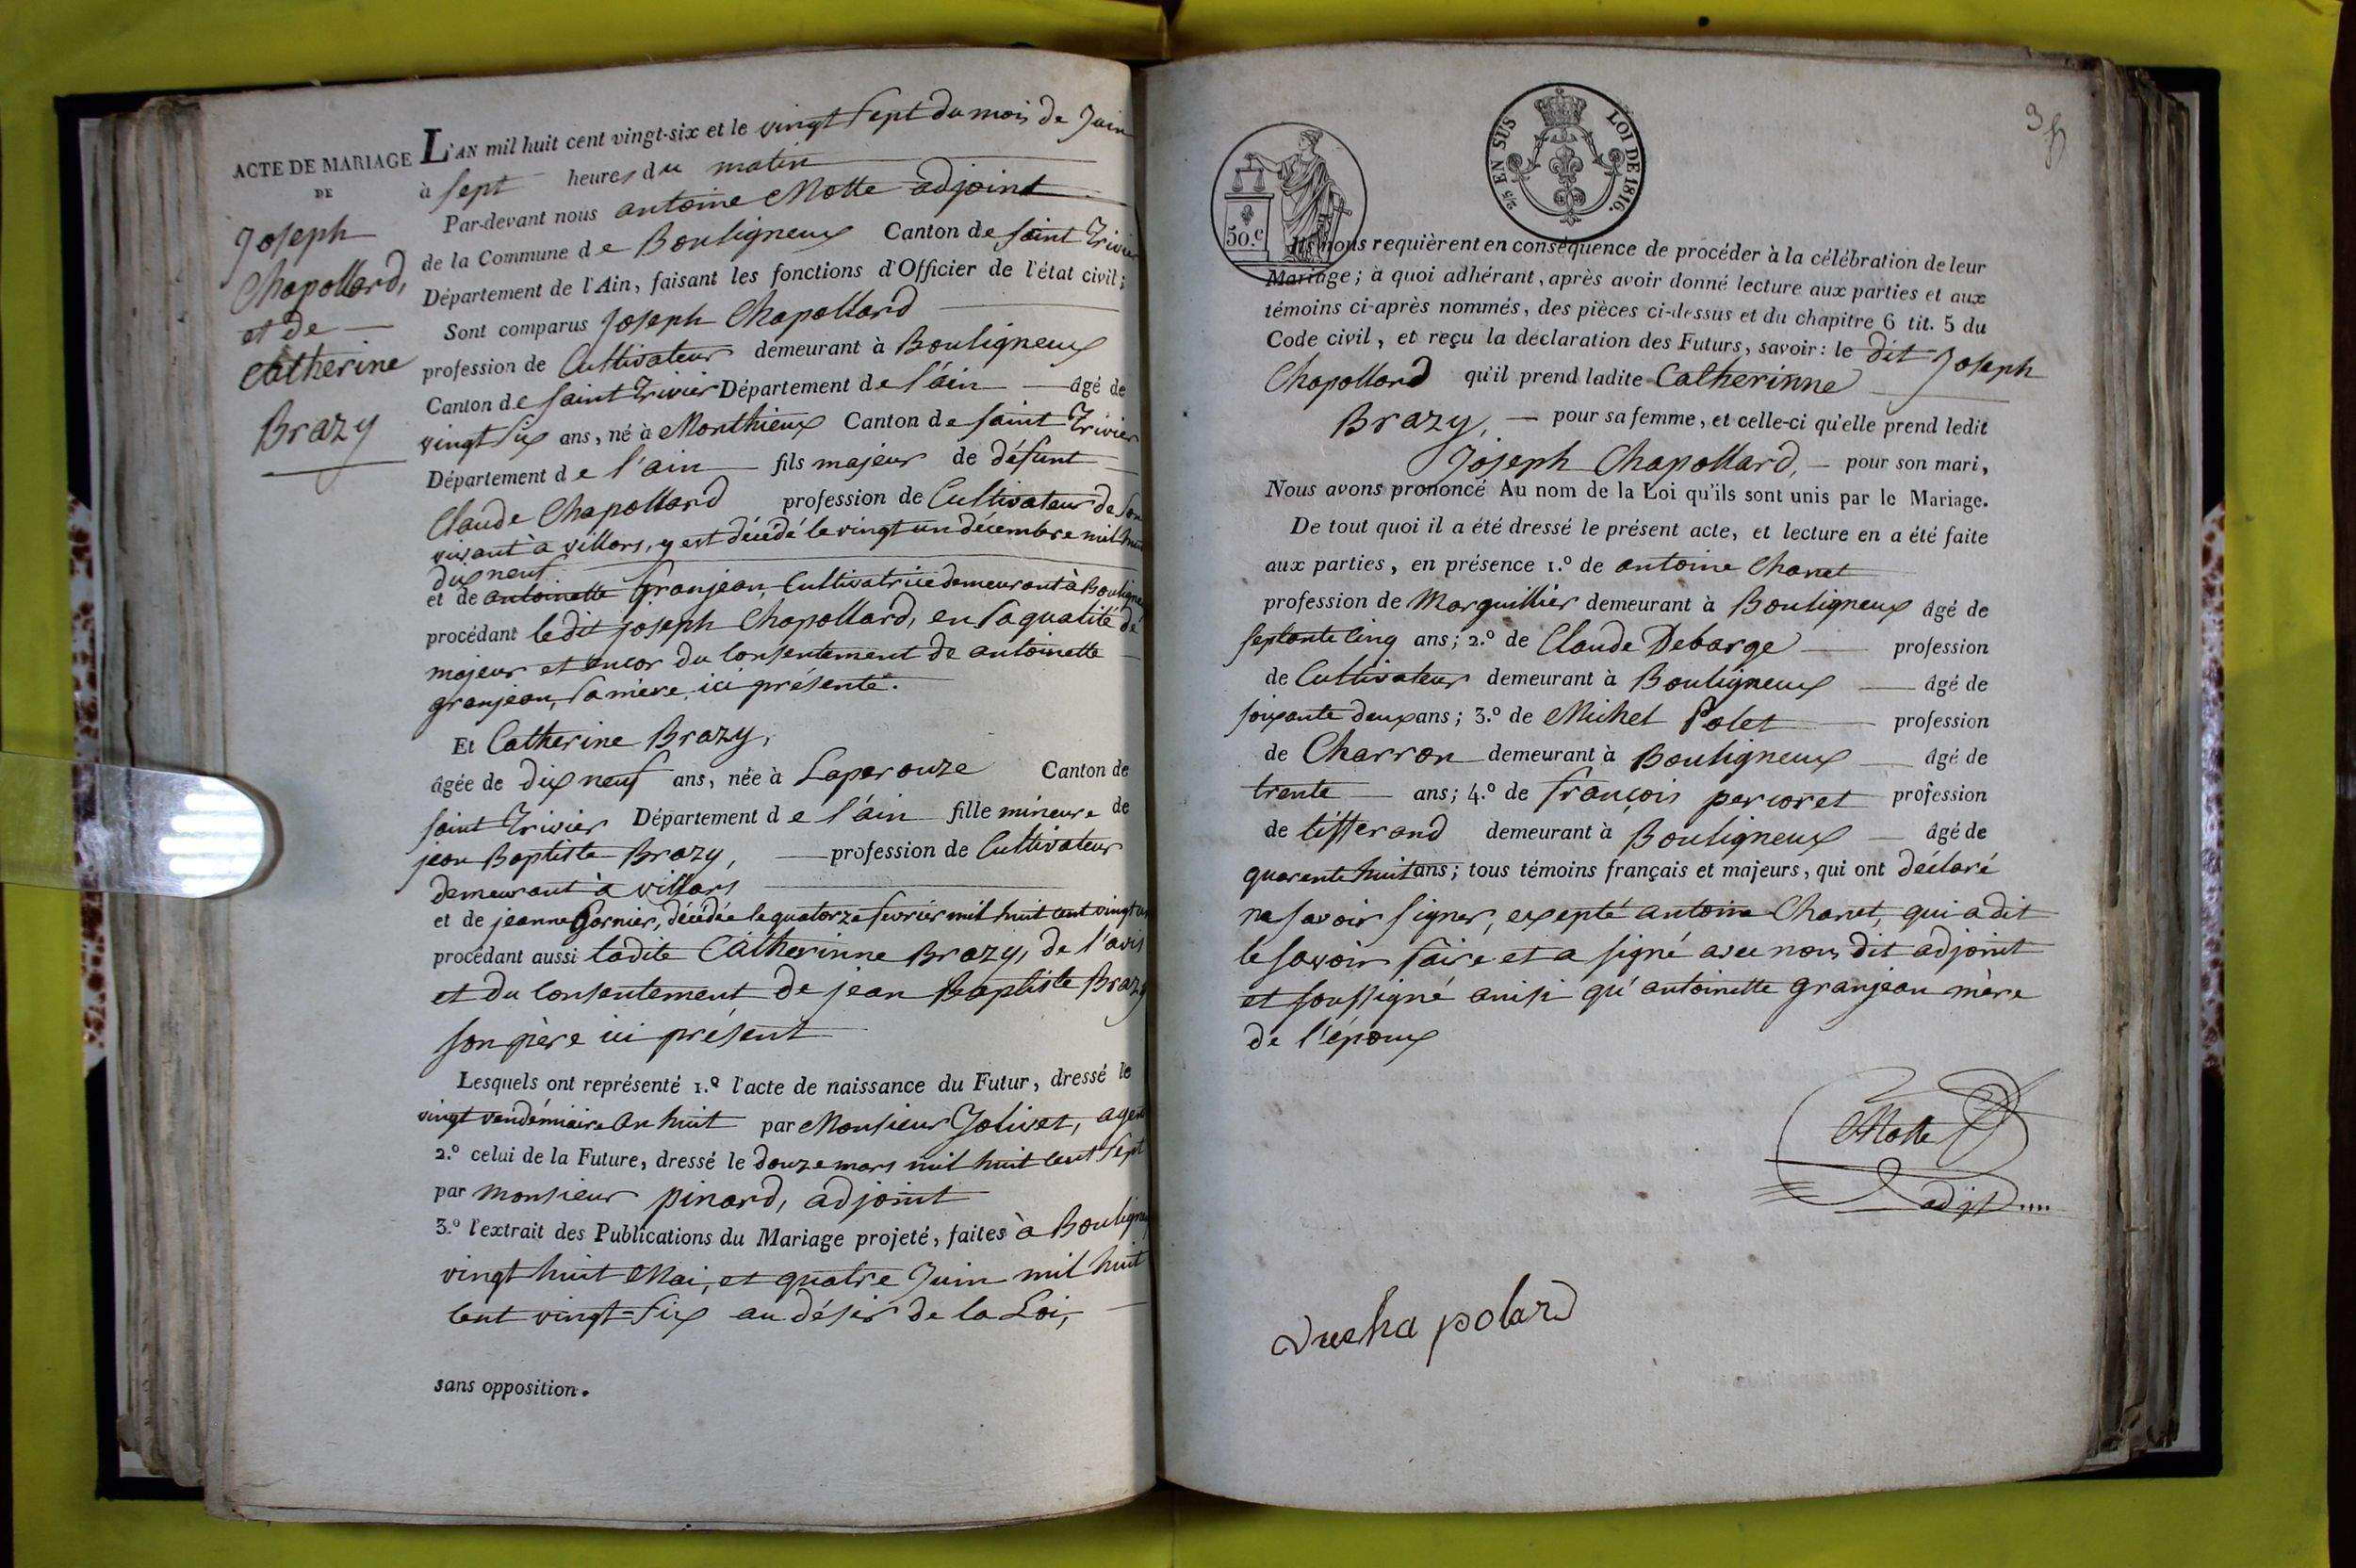 ACTE DE MARIAGE
DE
Joseph
Chapollard,
et de
Catherine
Brazy
L'AN mil huit cent vingt-six et le vingt sept du mois de Juin
à sept heures du matin
Par-devant nous antoine Motte adjoint
de la Commune de Bouligneux Canton de saint Trivier
Département de l'Ain, faisant les fonctions d'Officier de l'état civil;
Sont comparus Joseph Chapollard
profession de Cultivateur demeurant à Bouligneux
Canton de saint Trivier Département de l'ain âgé de
vingt six ans, né à Monthieux Canton de saint Trivier
Département de l'ain fils majeur de défunt
Claude Chapollard profession de Cultivateur de son
vivant à villars, y est décédé le vingt un décembre mil huit
dix neuf
et de antoinette granjean, Cultivatrice demeurant à Bouligneux
procédant ledit joseph Chapollard, en sa qualité de
majeur et encor du Consentement de antoinette
granjean, sa mère ici présente.
Et Catherine Brazy,
âgée de dix neuf ans, née à Laperouze Canton de
saint Trivier Département de l'ain fille mineure de
jean Baptiste Brazy, profession de Cultivateur
demeurant à villars
et de jeanne Gornier, décédée le quatorze fevrier mil huit cent vingt un
procédant aussi ladite Catherinne Brazy, de l'avis
et du Consentement de jean Baptiste Brazy
son père ici présent
Lesquels ont représenté 1.º l'acte de naissance du Futur, dressé le
vingt vendémiaire an huit par Monsieur Jolivet, agent
2.º celui de la Future, dressé le douze mars mil huit cent sept
par monsieur pinard, adjoint
3.º l'extrait des Publications du Mariage projeté, faites à Bouligneux
vingt huit Mai, et quatre Juin mil huit
cent vingt=six au désir de la Loi,
sans opposition.
50.c
2/5 EN SUS LOI DE 1816.
Ils nous requièrent en conséquence de procéder à la célébration de leur
Mariage; à quoi adhérant, après avoir donné lecture aux parties et aux
témoins ci-après nommés, des pièces ci-dessus et du chapitre 6 tit. 5 du
Code civil, et reçu la déclaration des Futurs, savoir: le dit Joseph
Chapollard qu'il prend ladite Catherinne
Brazy, pour sa femme, et celle-ci qu'elle prend ledit
Joseph Chapollard, pour son mari,
Nous avons prononcé Au nom de la Loi qu'ils sont unis par le Mariage.
De tout quoi il a été dressé le présent acte, et lecture en a été faite
aux parties, en présence 1.º de antoine Chanet
profession de Marguillier demeurant à Bouligneux âgé de
septante cinq ans; 2.º de Claude Debarge profession
de Cultivateur demeurant à Bouligneux âgé de
soixante deux ans; 3.º de Michel Polet profession
de Charron demeurant à Bouligneux âgé de
trente ans; 4.º de françois percoret profession
de tisserand demeurant à Bouligneux âgé de
quarente huit ans; tous témoins français et majeurs, qui ont déclaré
ne savoir signer, expepté antoine Chanet, qui a dit
le savoir faire et a signé avec nous dit adjoint
et soussigné ainsi qu'antoinette granjean mère
de l'époux
Motte
adjt....